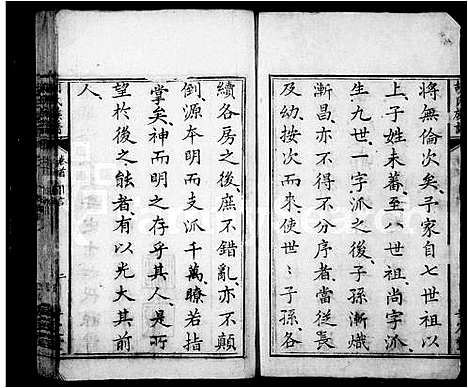 將無倫次矣予家自七世祖以
上子姓未蕃至八世祖尚字派
生九世一字派之後子孫漸熾
漸昌亦不得不分序者當從長
及幼按次而來使世〻子孫各
續各房之後庶不錯亂亦不顛
倒源本明而支派千萬瞭若指
掌矣神而明之存乎其人是所
望於後之能者有以光大其前
人
卷首